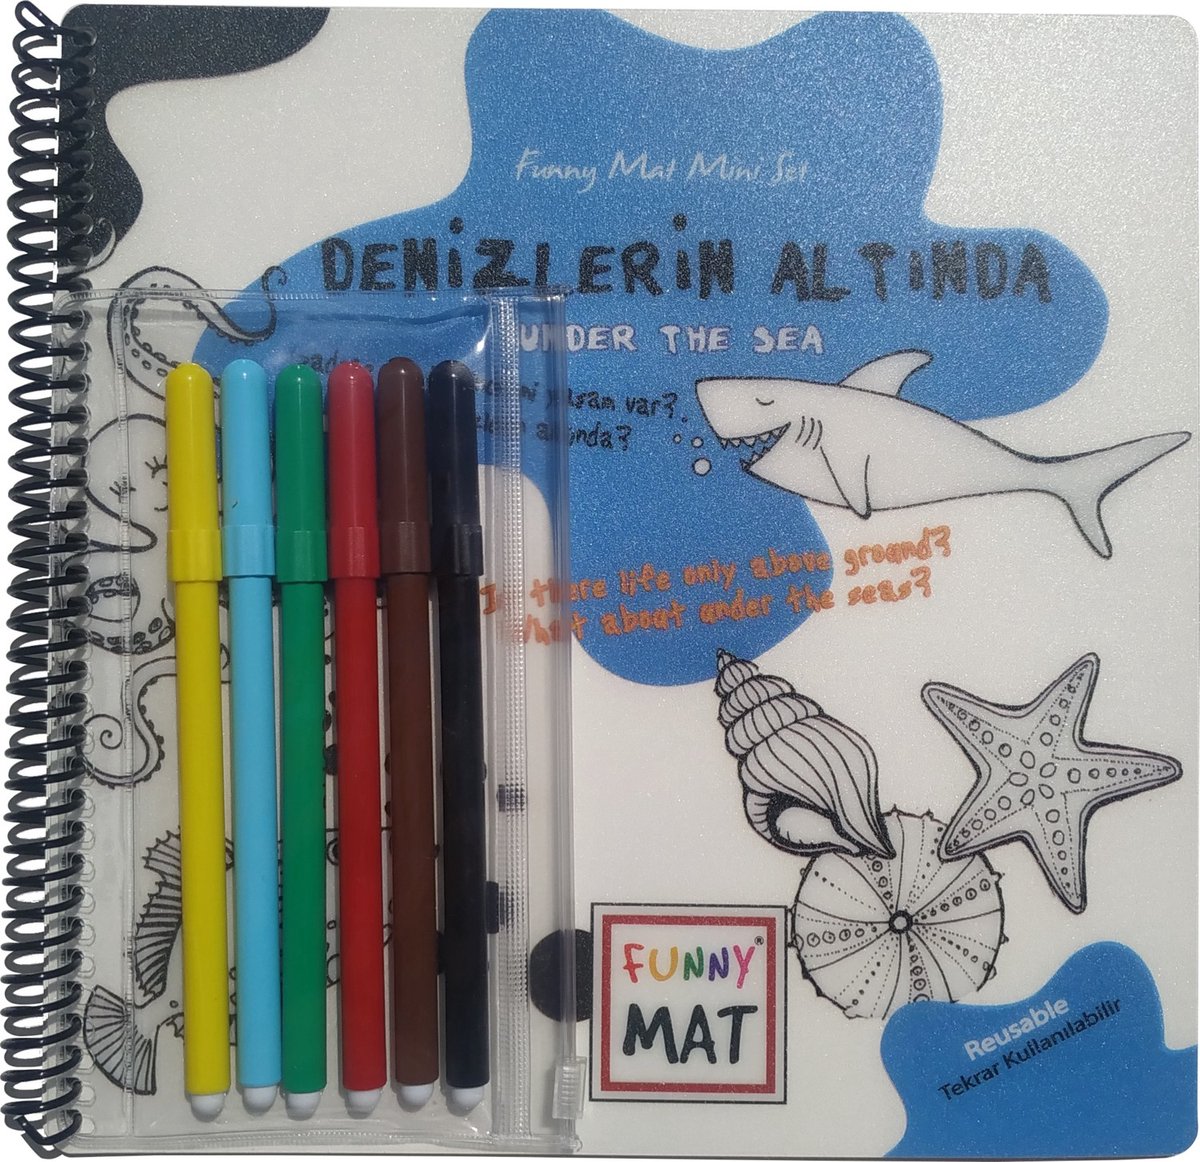 Funny Mat Mini Set
DENİZLERİN ALTINDA
UNDER THE SEA
yaşam var?
there life only above ground?
What about under the seas?
FUNNY®
MAT
Reusable
Tekrar Kullanılabilir